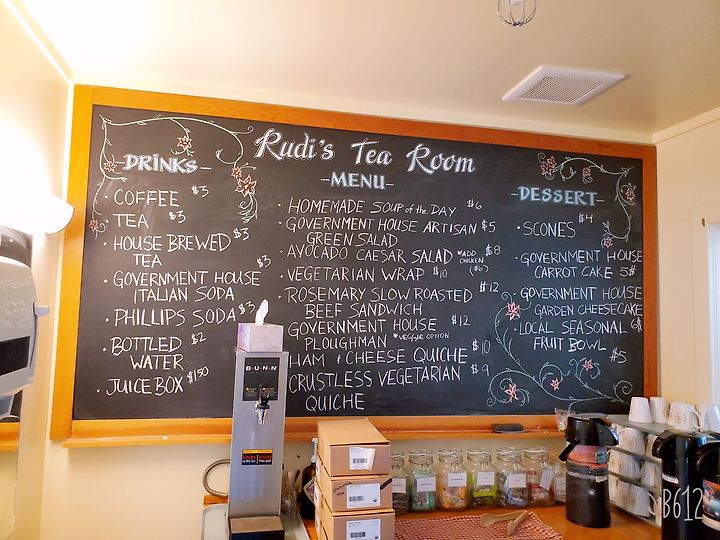 Rudi's Tea Room
-MENU-
-DRINKS-
• COFFEE $3
• TEA $3
• HOUSE BREWED $3
TEA
• GOVERNMENT HOUSE $3
ITALIAN SODA
• PHILLIPS SODA $3
• BOTTLED $2
WATER
• JUICE BOX $1.50
• HOMEMADE SOUP of the DAY $6
• GOVERNMENT HOUSE ARTISAN $5
GREEN SALAD
• AVOCADO CAESAR SALAD $8
*ADD
CHICKEN
($6)
• VEGETARIAN WRAP $10
• ROSEMARY SLOW ROASTED $12
BEEF SANDWICH
GOVERNMENT HOUSE $12
PLOUGHMAN *VEGGIE OPTION
HAM & CHEESE QUICHE $10
CRUSTLESS VEGETARIAN $9
QUICHE
-DESSERT-
• SCONES $4
• GOVERNMENT HOUSE
CARROT CAKE 5$
• GOVERNMENT HOUSE
GARDEN CHEESECAKE
6$
• LOCAL SEASONAL
FRUIT BOWL
$5
BUNN
B612